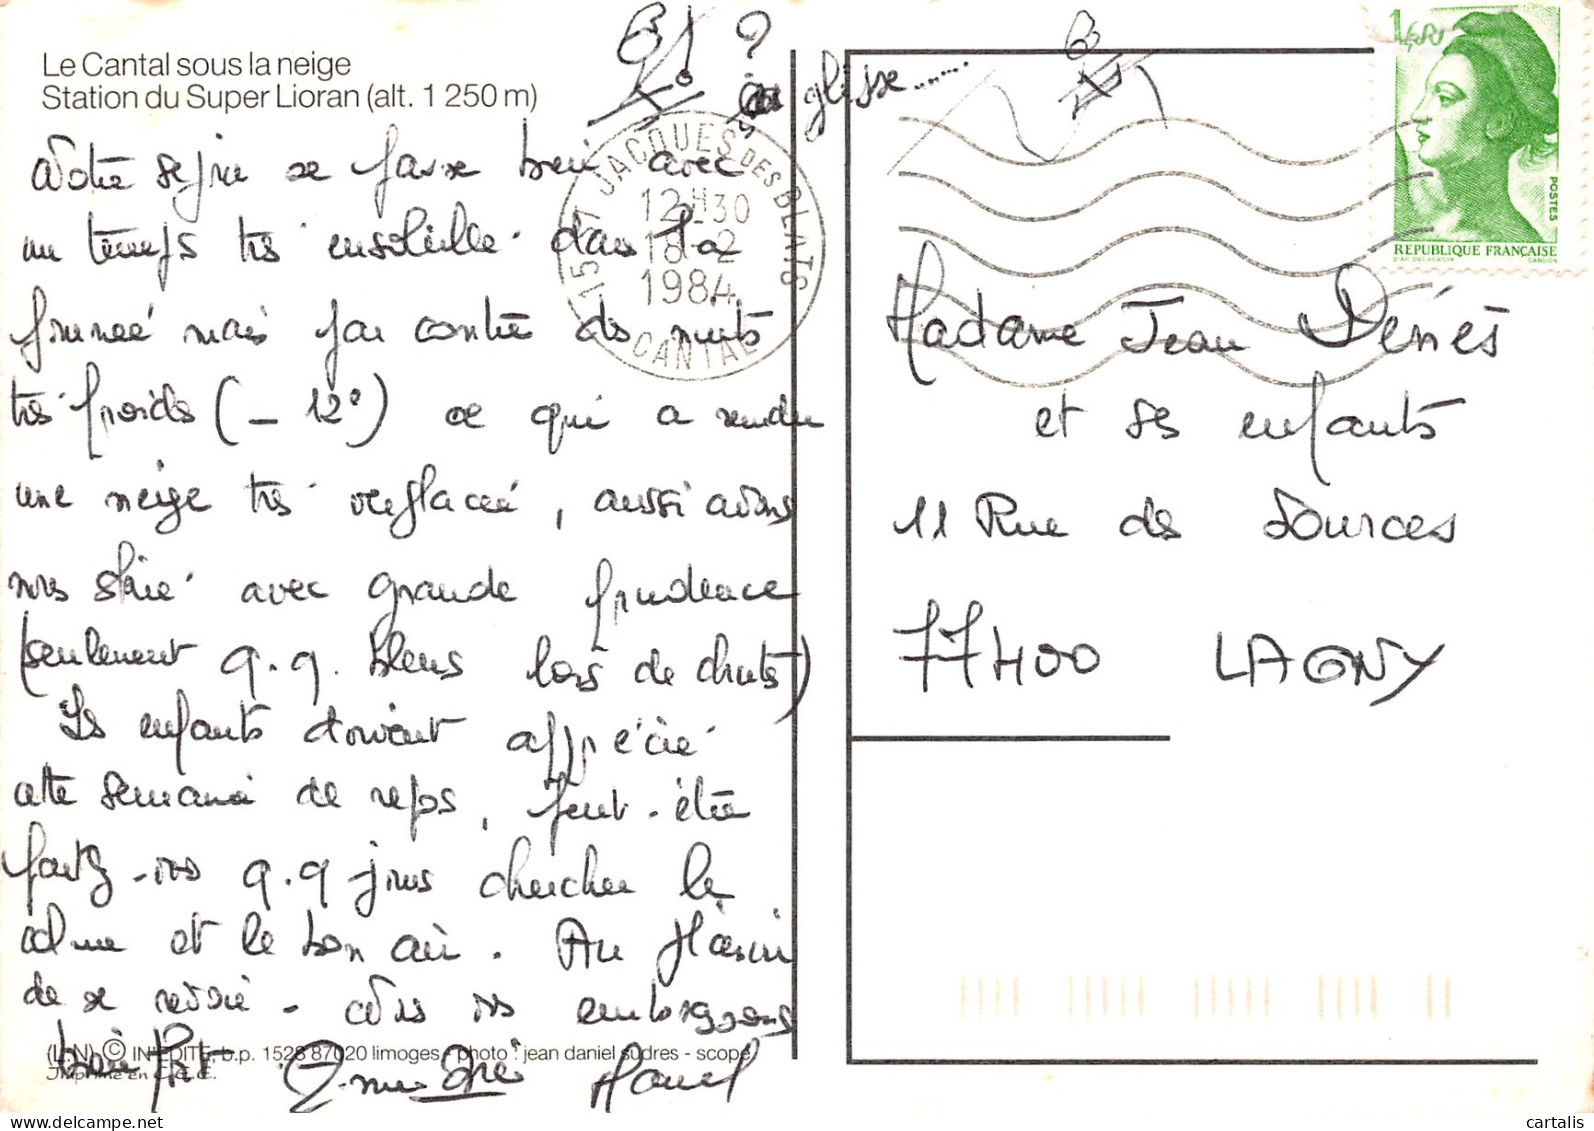 Le Cantal sous la neige
Station du Super Lioran (alt. 1 250 m)
ça glisse.......
Notre séjour se passe bien avec
un temps très ensoleillé dans la
journée mais par contre des nuits
très froids (- 12°) ce qui a rendu
une neige très verglacée, aussi avons
nous skié avec grande prudence
(seulement q.q. bleus lors de chutes)
Les enfants doivent apprécier
cette semaine de repos, peut-être
partez-vous q.q jours chercher le
calme et le bon air. Au plaisir
de se revoir - nous vous embrassons
bien fort
Marcel
(L.N) © INEDITE, b.p. 1528 87020 limoges - photo : jean daniel sudres - scope
Imprimé en C.E.E.
15 ST JACQUES DES BLATS
12H30
18-2
1984
CANTAL
1,80
POSTES
REPUBLIQUE FRANÇAISE
Madame Jean Denès
et ses enfants
11 Rue des Sources
77400 LAGNY
cartalis